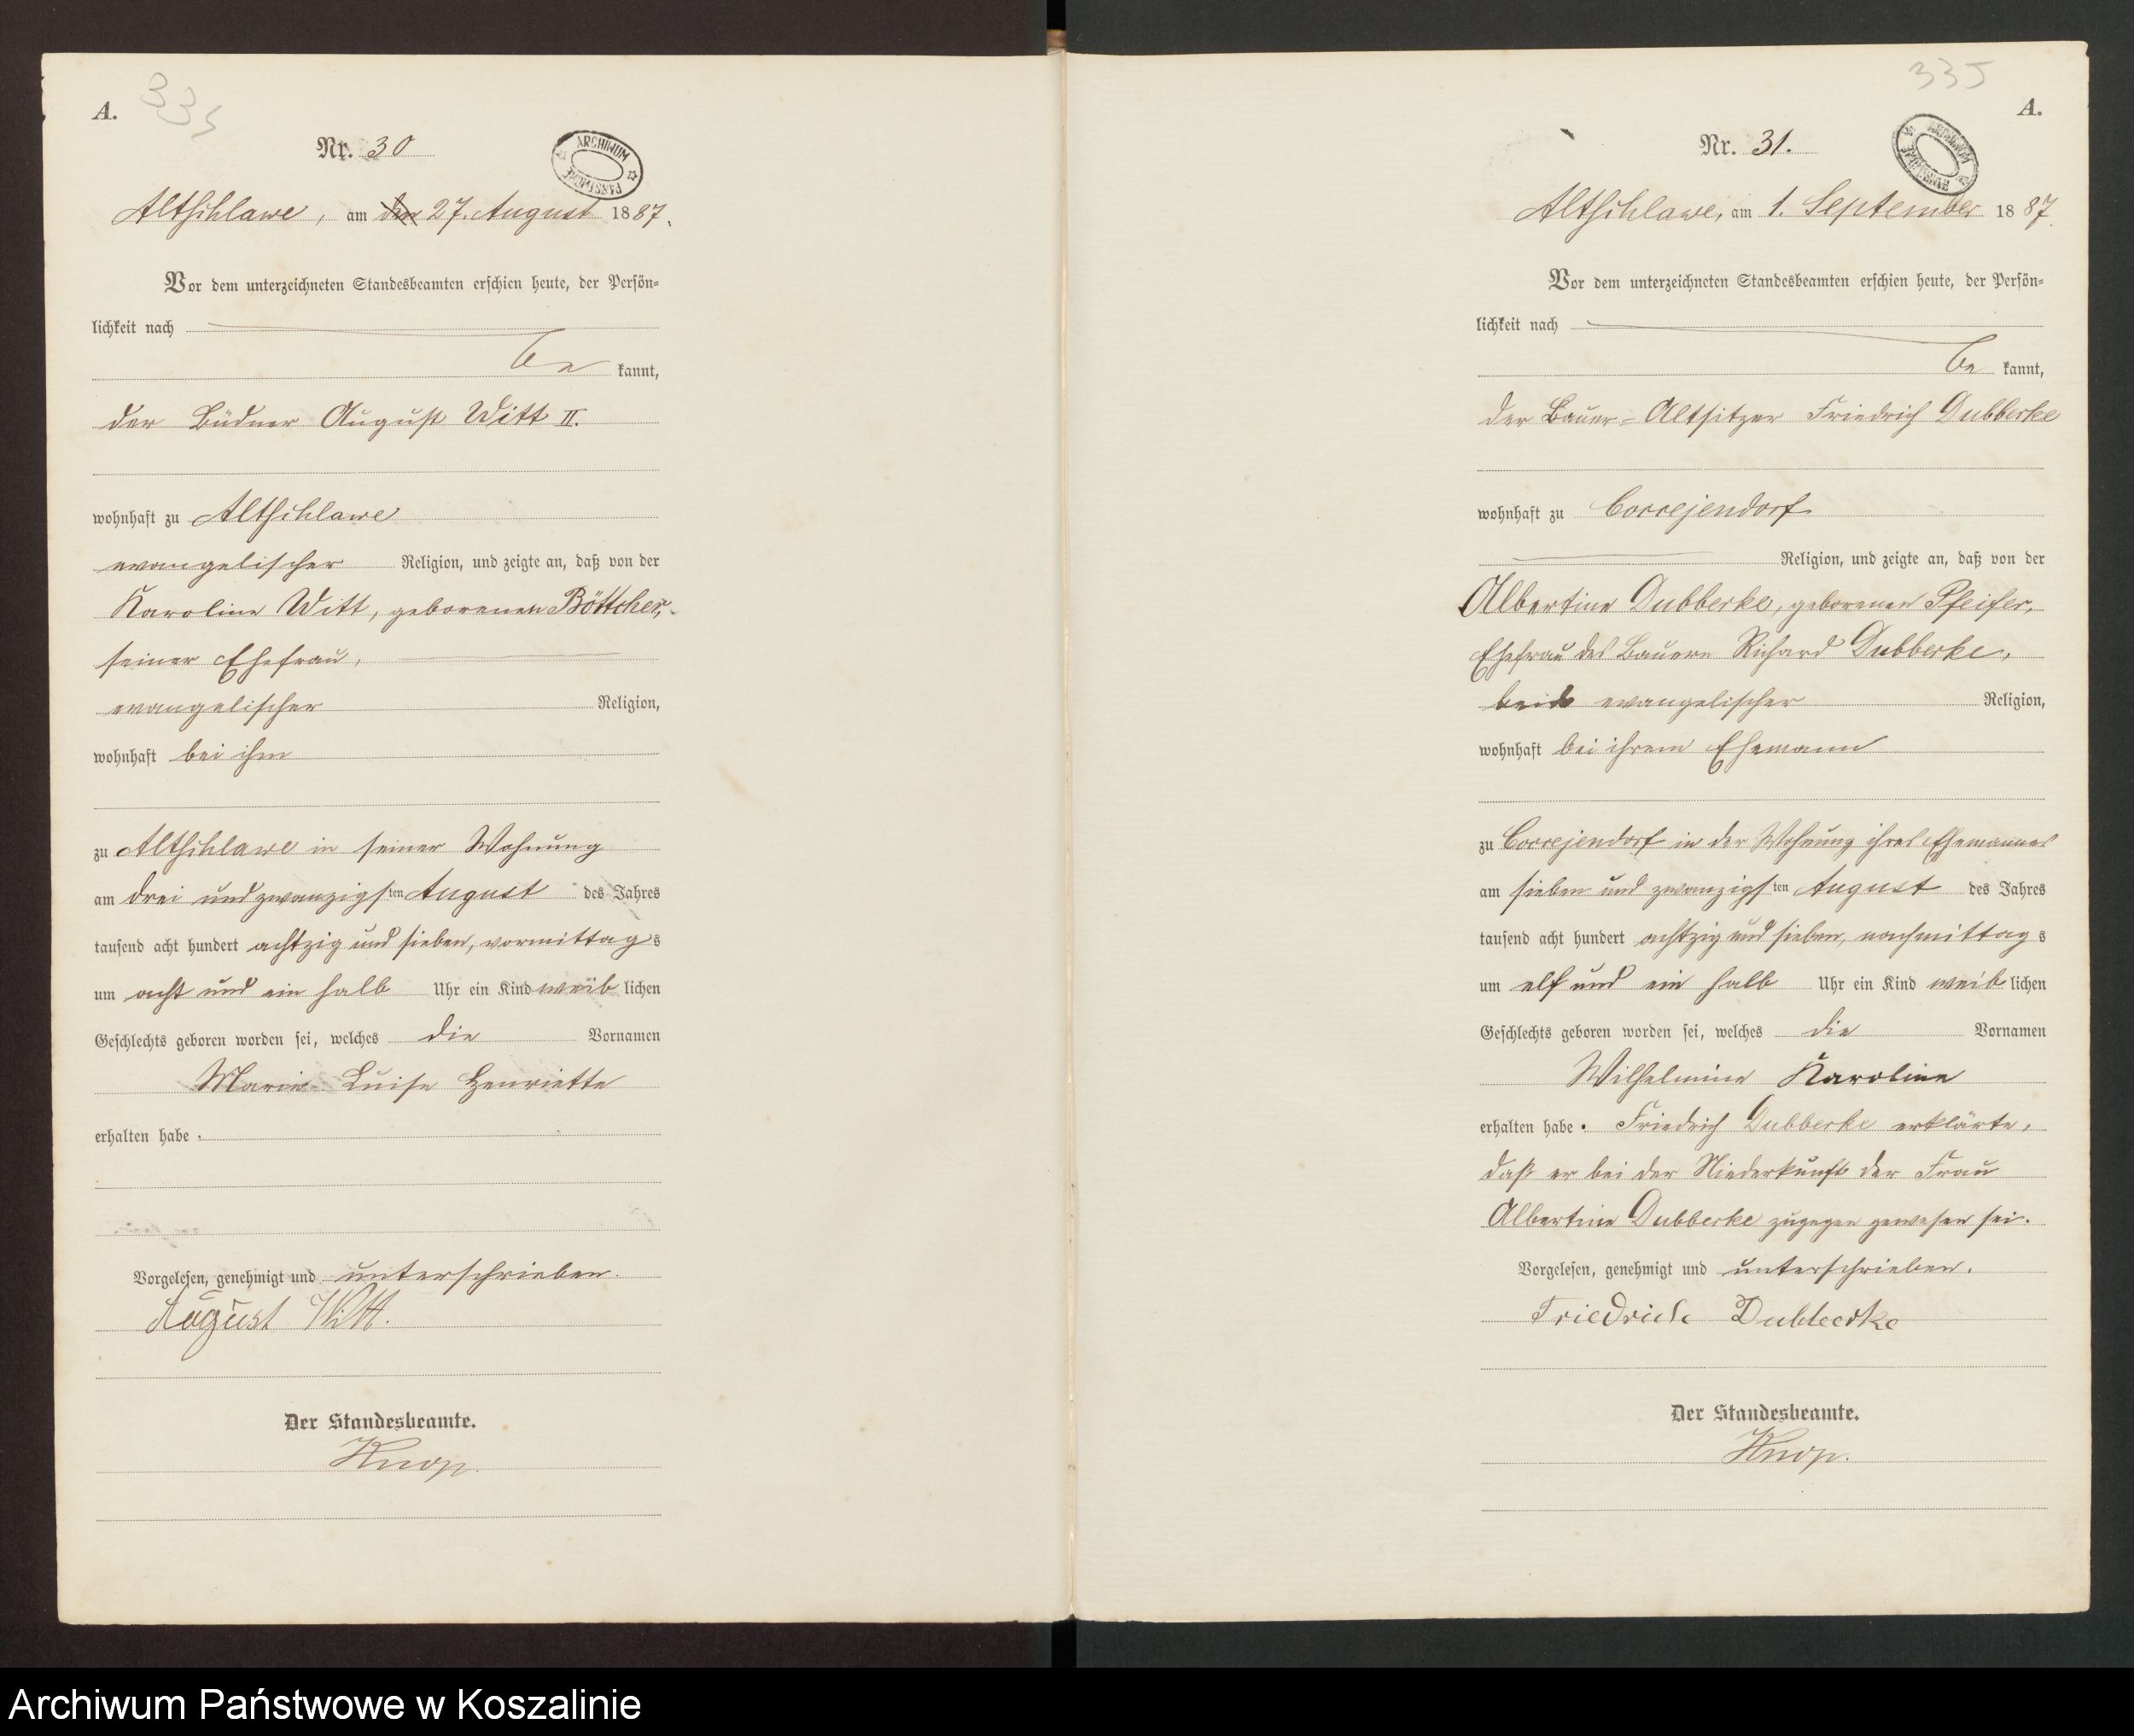 A.
335
Nr. 30
ARCHIWUM PAŃSTWOWE
Altschlawe, am den 27. August 1887.
Vor dem unterzeichneten Standesbeamten erschien heute, der Persön-
lichkeit nach
be kannt,
der Büdner August Witt II.
wohnhaft zu Altschlawe
evangelischer Religion, und zeigte an, daß von der
Karoline Witt, geborenen Böttcher,
seiner Ehefrau,
evangelischer Religion,
wohnhaft bei ihm
zu Altschlawe in seiner Wohnung
am drei und zwanzigsten August des Jahres
tausend acht hundert achtzig und sieben, vormittags
um acht und ein halb Uhr ein Kind weiblichen
Geschlechts geboren worden sei, welches die Vornamen
Marie Luise Henriette
erhalten habe.
Vorgelesen, genehmigt und unterschrieben.
August Witt.
Der Standesbeamte.
Knop.
335
A.
Nr. 31.
ARCHIWUM PAŃSTWOWE
Altschlawe, am 1. September 1887.
Vor dem unterzeichneten Standesbeamten erschien heute, der Persön-
lichkeit nach
be kannt,
der Bauer-Altsitzer Friedrich Dubberke
wohnhaft zu Coccejendorf
Religion, und zeigte an, daß von der
Albertine Dubberke, geborenen Pfeifer,
Ehefrau des Bauern Richard Dubberke,
beide evangelischer Religion,
wohnhaft bei ihrem Ehemann
zu Coccejendorf in der Wohnung ihres Ehemannes
am sieben und zwanzigsten August des Jahres
tausend acht hundert achtzig und sieben, nachmittags
um elf und ein halb Uhr ein Kind weiblichen
Geschlechts geboren worden sei, welches die Vornamen
Wilhelmine Karoline
erhalten habe. Friedrich Dubberke erklärte,
daß er bei der Niederkunft der Frau
Albertine Dubberke zugegen gewesen sei.
Vorgelesen, genehmigt und unterschrieben.
Friedrich Dubberke
Der Standesbeamte.
Knop.
Archiwum Państwowe w Koszalinie